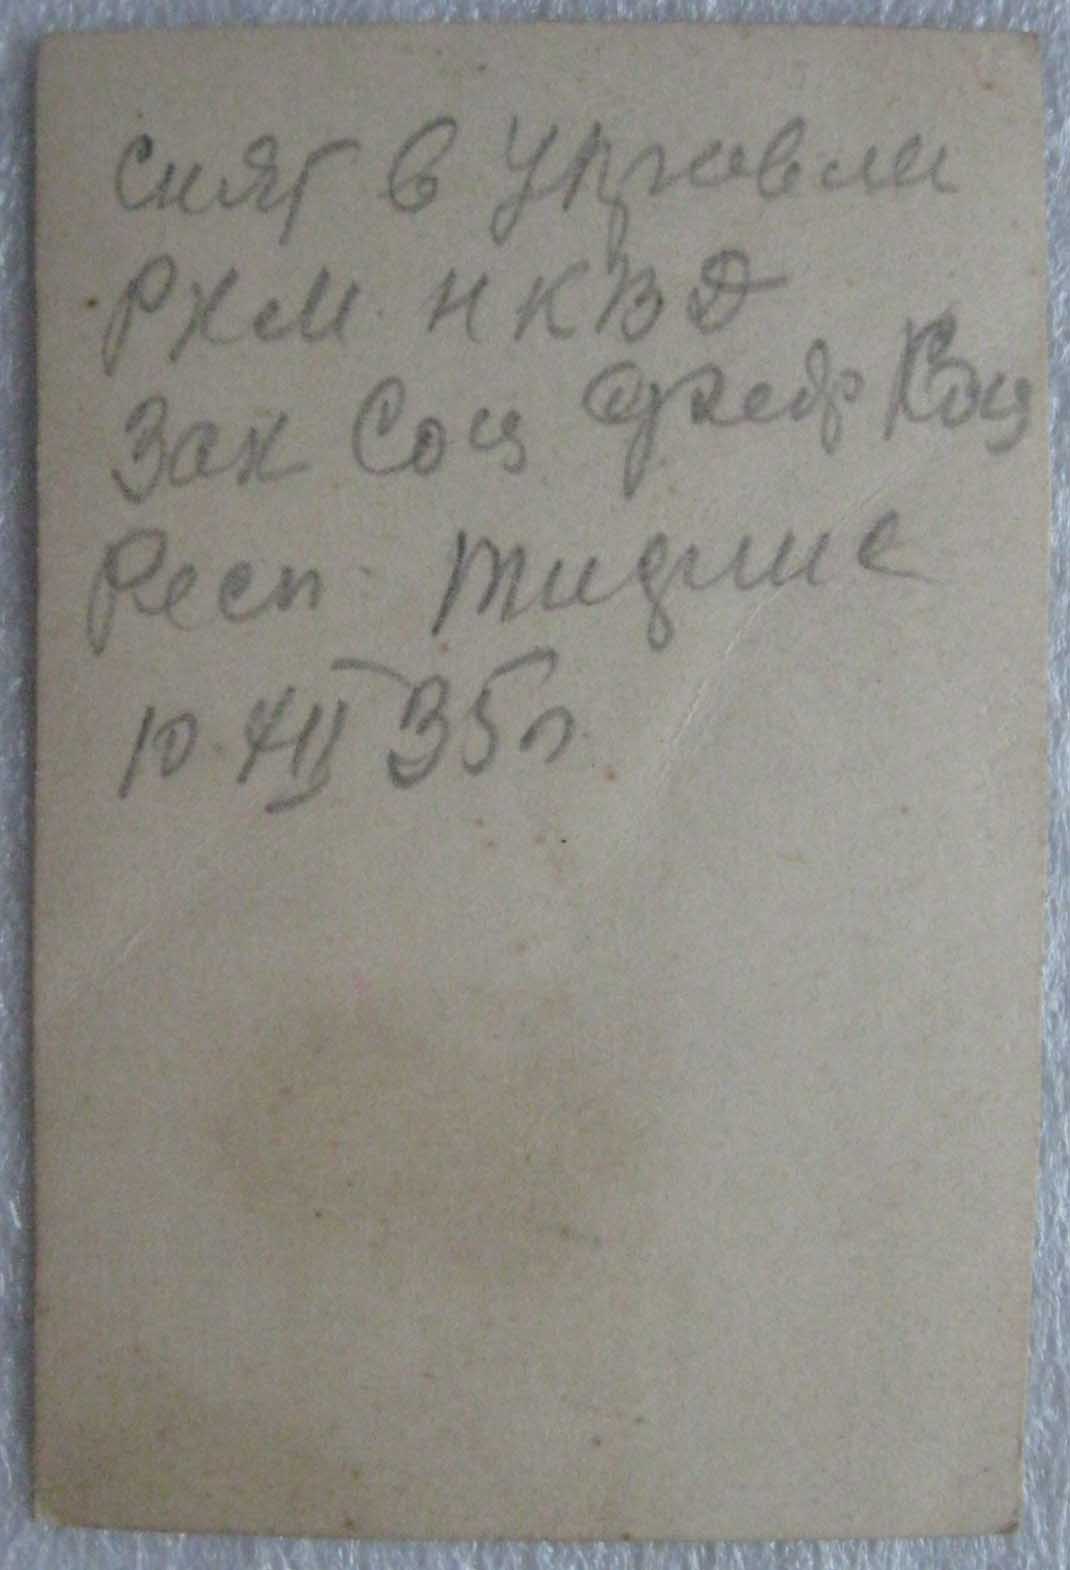 Снят в Управлен
РКМ НКВД
Зак Соц Федер
Респ. Тифлис
10. XII 35 г.